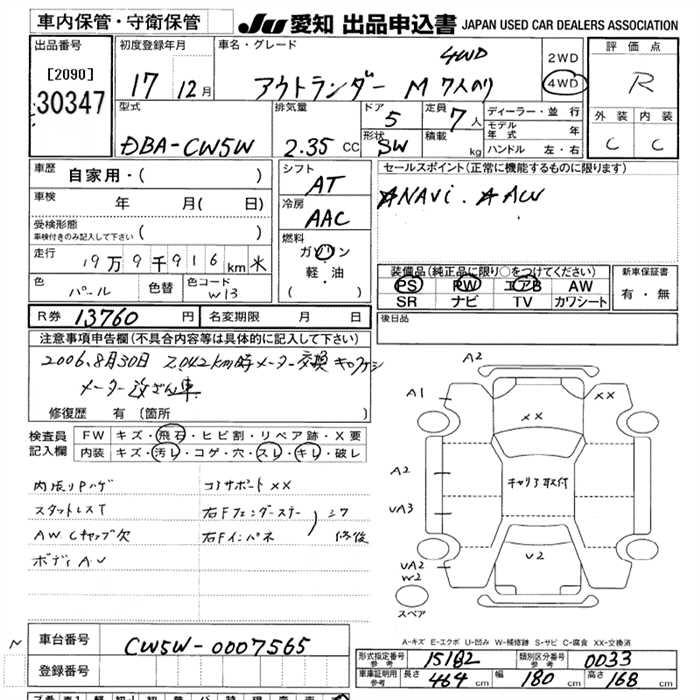 車内保管・守衛保管
JU 愛知 出品申込書 JAPAN USED CAR DEALERS ASSOCIATION
出品番号
[2090]
30347
初度登録年月
17 12月
車名・グレード
4WD
アウトランダー M 7人のり
2WD
4WD
評価点
R
外装 内装
C C
型式
DBA-CW5W
排気量
2.35 CC
ドア
5
形状
SW
定員
7人
積載
kg
ディーラー・並行
モデル年式 年
ハンドル 左・右
車歴 自家用・( )
車検 年 月( 日)
受検形態
車検付きのみ記入して下さい ( )
走行 19万9千916km 米
色 パール 色替 色コード W13
シフト
AT
冷房
AAC
燃料
ガソリン
軽・油
( )
セールスポイント(正常に機能するものに限ります)
☆NAVi. ☆AW
装備品(純正品に限り○をつけてください)
PS PW エアB AW
SR ナビ TV カワシート
新車保証書
有・無
R券 13760円 名変期限 月 日
後日品
注意事項申告欄(不具合内容等は具体的に記入して下さい)
2006.8月30日 2.042km時メーター交換
メーター改ざん車
修復歴 有 (箇所 )
検査員
記入欄
FW キズ・飛石・ヒビ割・リペア跡・X要
内装 キズ・汚レ・コゲ・穴・スレ・キレ・破レ
内張りハゲ
スタットレスT
AWCキャップ欠
コアサポートXX
右Fフェンダーステー
右Fインパネ
A2
A1
XX
XX
A2
キャリア取付
UA3
U2
UA2
W2
スペア
A-キズ E-エクボ U-凹み W-補修跡 S-サビ C-腐食 XX-交換済
車台番号 CW5W-0007565
登録番号
形式指定番号
参考
15182
類別区分番号
参考
0033
車庫証明用
参考
長さ 464cm 幅 180cm 高さ 168cm